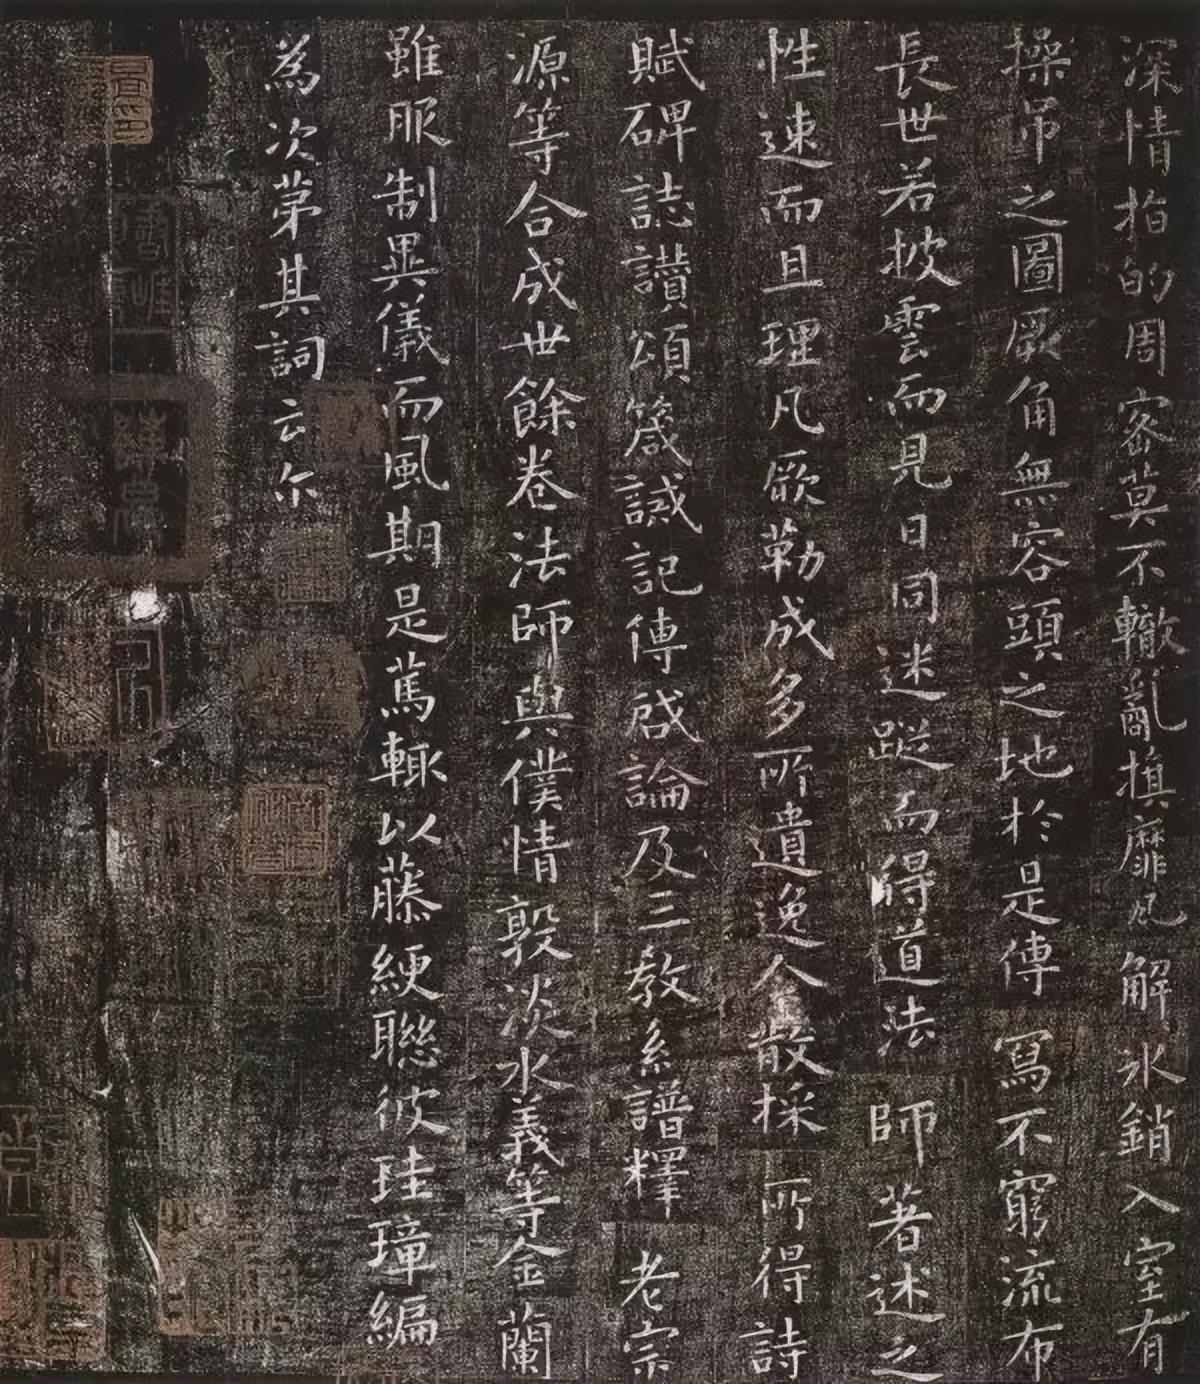 深情指的周密莫不轍亂旗靡瓦解冰銷入室有
操吊之圖厥角無容頭之地於是傳寫不窮流布
長世若披雲而見日同迷蹤而得道法師著述之
性速而且理凡厥勒成多所遺逸人散採所得詩
賦碑誌讚頌箴誡記傳啟論及三教系譜釋老宗
源等合成世餘卷法師與僕情敦淡水義等金蘭
雖服制異儀而風期是篤輒以藤綆聯彼珪璋編
為次第其詞云尔